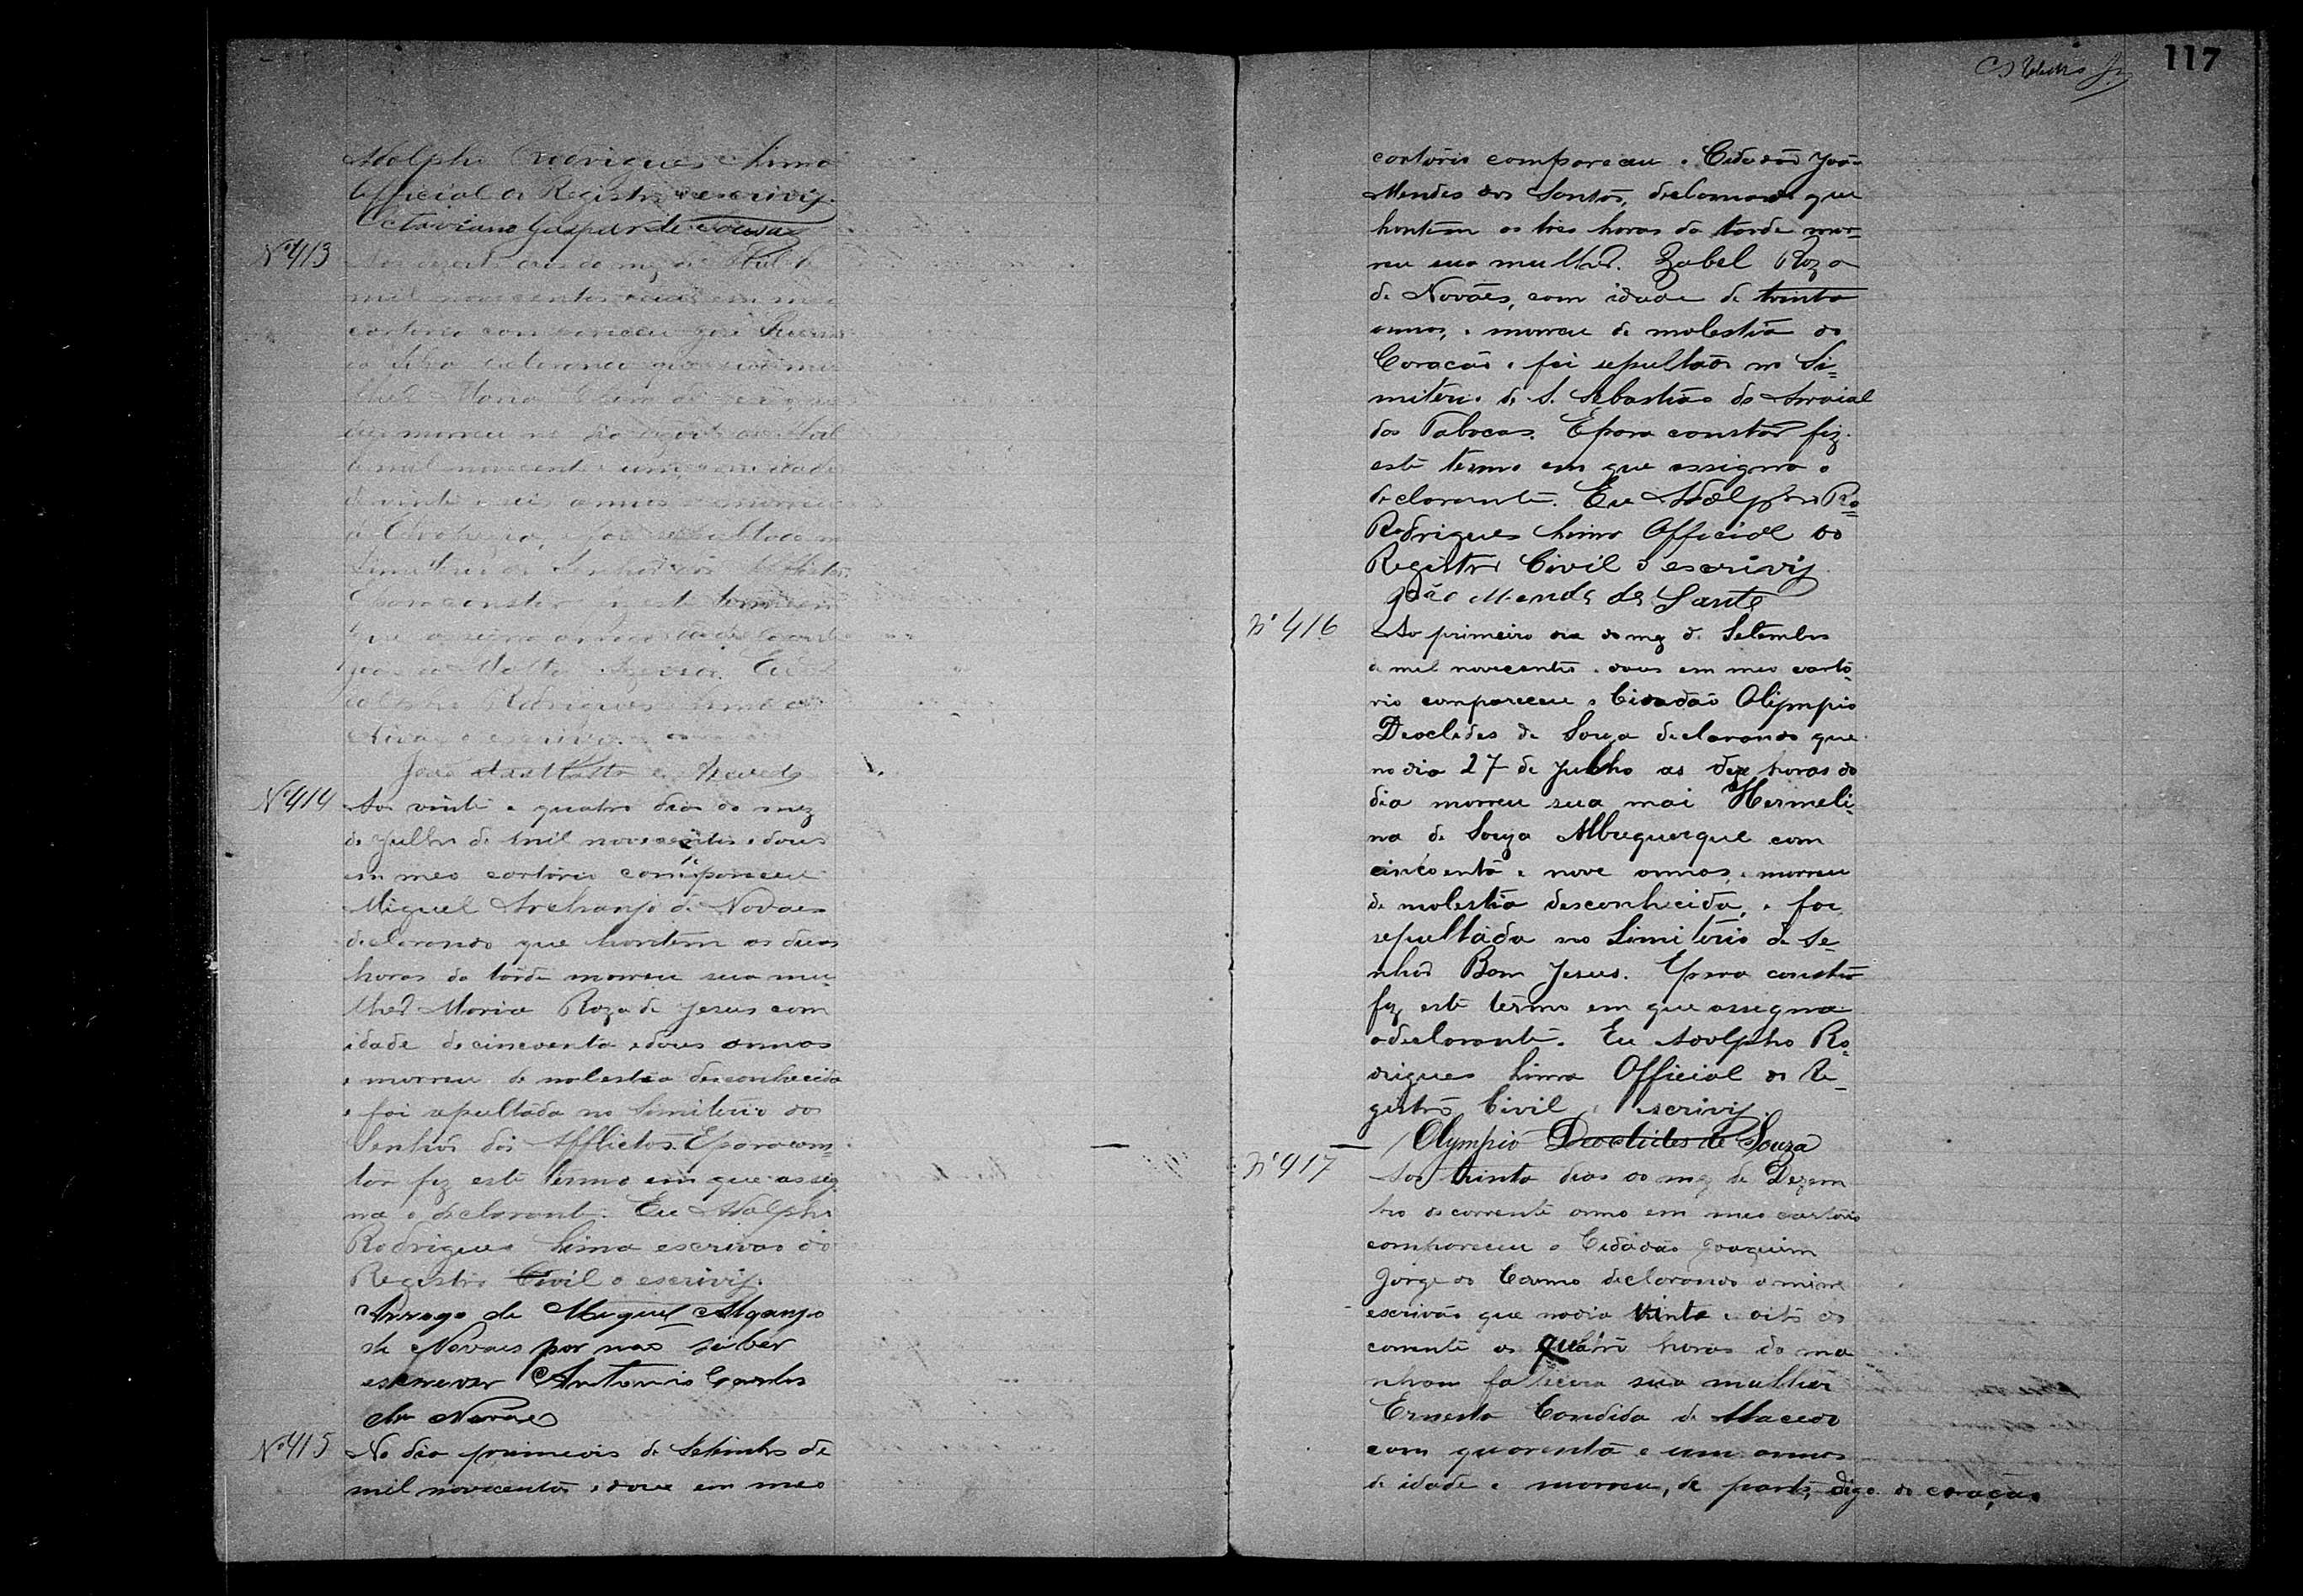 Adolpho Rodrigues Lima
Official do Registro o escrivij.
Octaviano Gaspar de Souza
Nº 413
Aos dezoito dias do mez de Abril de
mil novecentos e dous em meu
cartorio compareceu José
da Silva declarando que sua mu
lher Maria
morreu no dia
de mil novecentos e um, com idade
de vinte e seis annos e morreu
de foi sepultado no
Simiterio do Senhor dos Afflictos.
E para constar fiz este termo em
que assigna a rogo do declarante
João da Matta Azevedo. Eu A
dolpho Rodrigues Lima
o escrivij.
João da Matta e Azevedo
Nº 414
Aos vinte e quatro dias do mez
de Julho de mil novecentos e dous
em meo cartorio compareceu
Miguel Archanjo de Novaes
declarando que hontem as duas
horas da tarde morreu sua mu-
lher Maria Roza de Jesus com
idade de cincoenta e dous annos
e morreu de molestia desconhecida
e foi sepultada no Simiterio do
Senhor dos Afflictos. E para cons=
tar fiz este termo em que assig
na o declarante. Eu Adolpho
Rodrigues Lima escrivão do
Registro Civil o escrivij.
Arrogo de Miguel Alganjo
de Novaes por não saber
escrever Antonio Carlos
de Novaes
Nº 415
No dia primeiro de Setimbro de
mil novecentos e dous em meo
117
cartorio compareceu o Cidadão João
Mendes dos Santos, declarando que
hontem as tres horas da tarde mor=
reu sua mulher. Zabel Roza
de Novaes, com idade de trinta
annos, e morreu de molestia do
Coração e foi sepultado no Si=
miterio de S. Sebastião do Arraial
das Tabocas. E para constar fiz
este termo em que assigna o
declarante. Eu Adolpho Ro=
Rodrigues Lima Official do
Registro Civil o escrivij
João Mends ds Sants
Nº 416
Ao primeiro dia do mez de Setembro
de mil novecentos e dous em meo carto-
rio compareceu o Cidadão Olipmpio
Deoclides de Souza declarando que
no dia 27 de Julho as dez horas do
dia morreu sua mai Hermeli-
na de Souza Albuquerque com
cincoenta e nove annos, e morreu
de molestia desconhecida, e foi
sepultada no Simiterio de Se-
nhor Bom Jesus. E para constar
fiz este termo em que assigna
o declarante. Eu Adolpho Ro-
drigues Lima Official do Re-
gistro Civil o escrivij.
Olympio Deoclides de Souza
Nº 417
Aos trinta dias do mez de Dezem
bro do corrente anno em meo cartorio
compareceu o Cidadão Joaquim
Jorge do Carmo declarando a mim
escrivão que no dia vinte e oito do
corrente as quatro horas da ma
nham falecera sua mulher
Ernesta Candida de Macedo
com quarenta e um annos
de idade e morreu, de parto, digo do coração